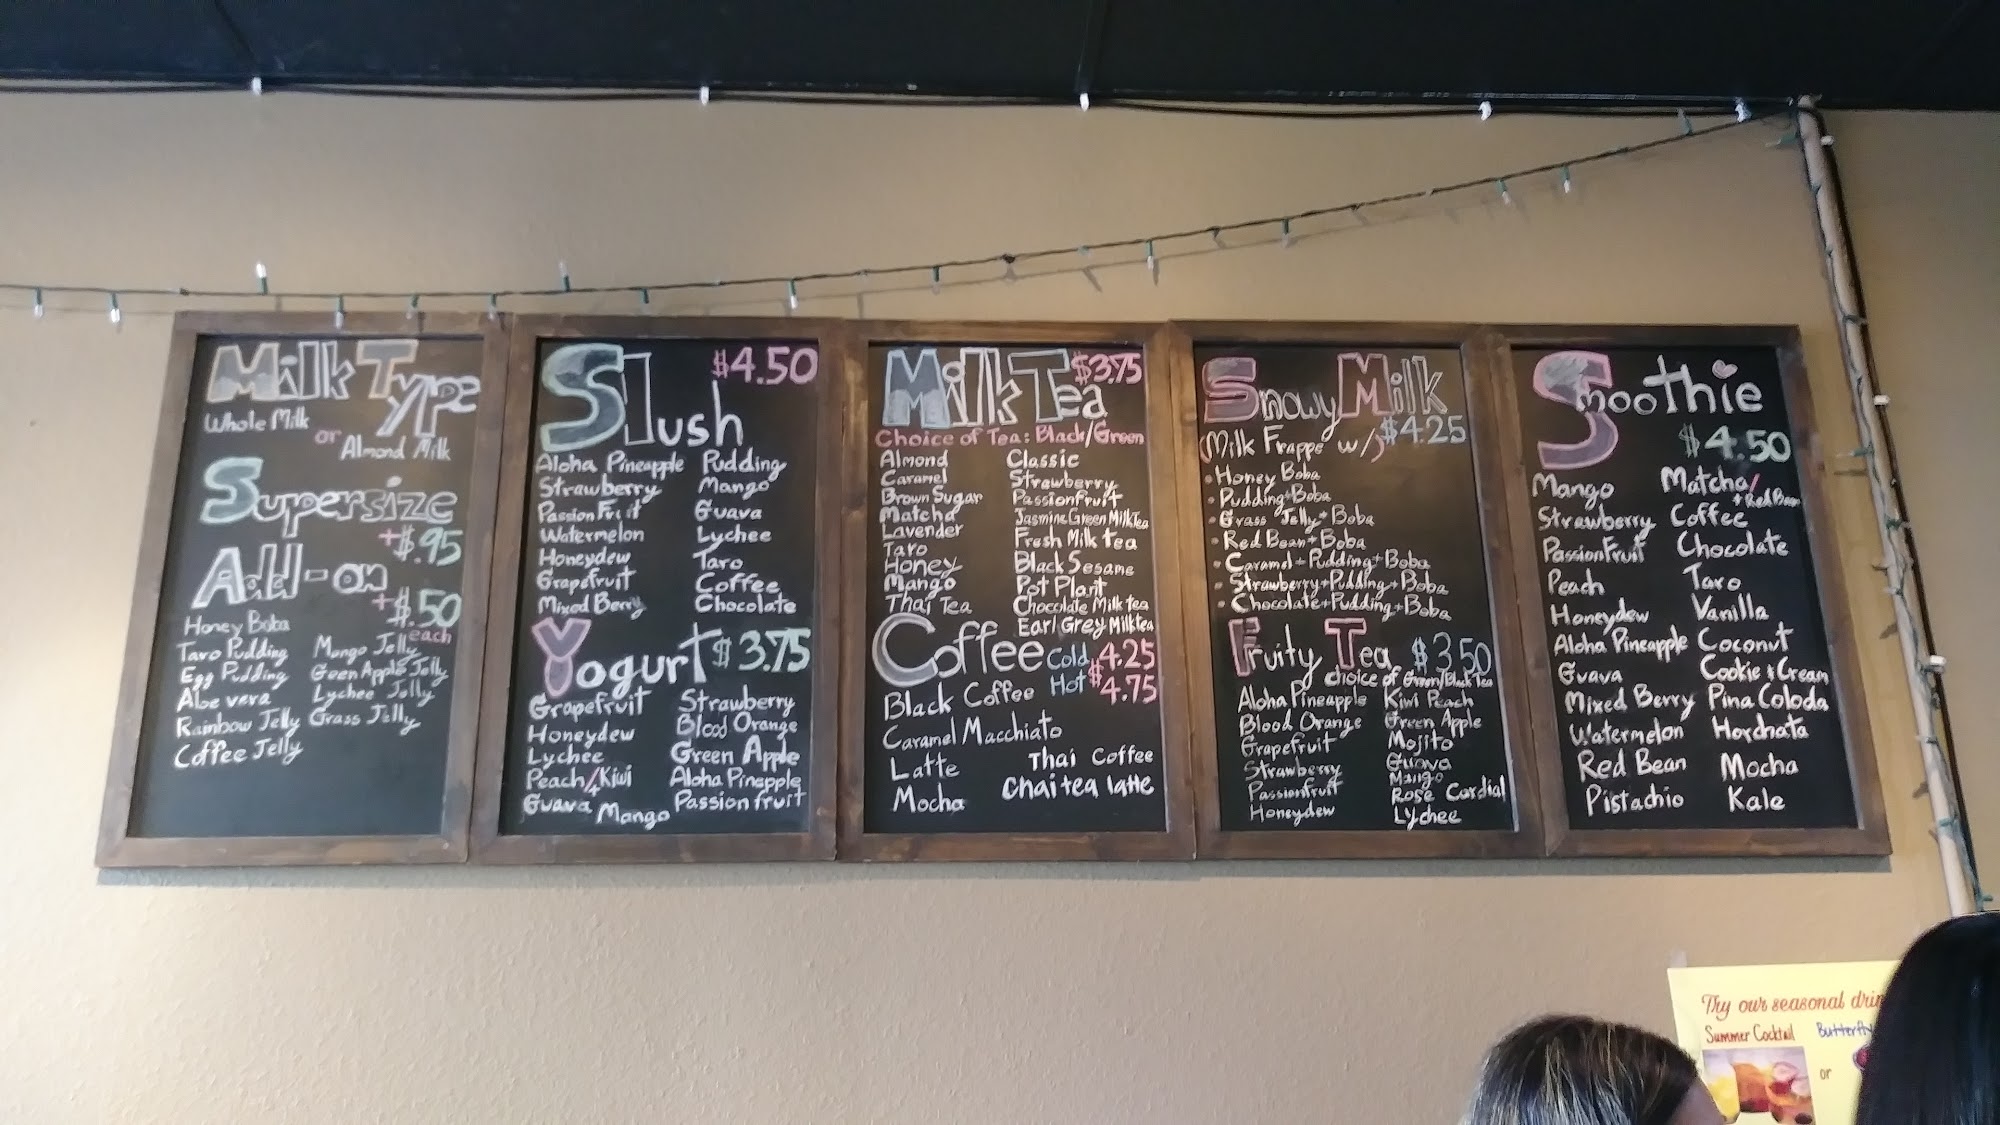 Milk Type
Whole Milk
or
Almond Milk
Supersize
+$.95
Add-on
+$.50
each
Honey Boba
Taro Pudding
Egg Pudding
Aloe vera
Rainbow Jelly
Coffee Jelly
Mango Jelly
Green Apple Jelly
Lychee Jelly
Grass Jelly
Slush
$4.50
Aloha Pineapple
Strawberry
Passion Fruit
Watermelon
Honeydew
Grapefruit
Mixed Berry
Pudding
Mango
Guava
Lychee
Taro
Coffee
Chocolate
Yogurt $3.75
Grapefruit
Honeydew
Lychee
Peach/Kiwi
Guava
Mango
Strawberry
Blood Orange
Green Apple
Aloha Pineapple
Passion fruit
Milk Tea
$3.75
Choice of Tea: Black/Green
Almond
Caramel
Brown Sugar
Matcha
Lavender
Taro
Honey
Mango
Thai Tea
Classic
Strawberry
Passionfruit
Jasmine Green Milk Tea
Fresh Milk tea
Black Sesame
Pot Plant
Chocolate Milk tea
Earl Grey Milktea
Coffee
Cold $4.25
Hot $4.75
Black Coffee
Caramel Macchiato
Latte
Mocha
Thai Coffee
Chai tea latte
Snowy Milk
$4.25
(Milk Frappe w/)
• Honey Boba
• Pudding+Boba
• Grass Jelly+Boba
• Red Bean+Boba
• Caramel+Pudding+Boba
• Strawberry+Pudding+Boba
• Chocolate+Pudding+Boba
Fruity Tea $3.50
choice of Green/Black Tea
Aloha Pineapple
Blood Orange
Grapefruit
Strawberry
Passionfruit
Honeydew
Kiwi Peach
Green Apple
Mojito
Guava
Mango
Rose Cordial
Lychee
Smoothie
$4.50
Mango
Strawberry
PassionFruit
Peach
Honeydew
Aloha Pineapple
Guava
Mixed Berry
Watermelon
Red Bean
Pistachio
Matcha/
+Red Bean
Coffee
Chocolate
Taro
Vanilla
Coconut
Cookie & Cream
Pina Coloda
Horchata
Mocha
Kale
Try our seasonal
Summer Cocktail
or